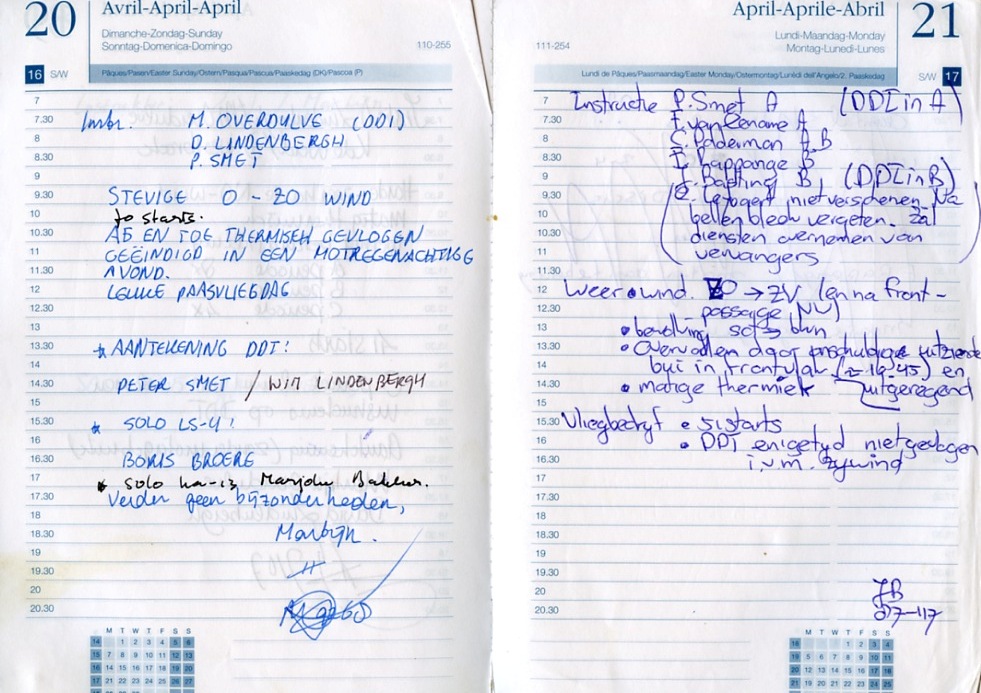 20
Avril-April-April
Dimanche-Zondag-Sunday
Sonntag-Domenica-Domingo
110-255
16 S/W
Pâques/Pasen/Easter Sunday/Ostern/Pasqua/Pascua/Paaskedag (DK)/Pascoa (P)
7
7.30 Instr. M. OVERDULVE (DDI)
8 D. LINDENBERGH
8.30 P. SMET
9
9.30 STEVIGE O - ZO WIND
10 starts.
10.30 AF EN TOE THERMISCH GEVLOGEN
11 GEËINDIGD IN EEN MOTREGENACHTIGE
11.30 AVOND.
12 LEUKE PAASVLIEGDAG
12.30
13
13.30 * AANTEKENING DDT!
14
14.30 PETER SMET / WIM LINDENBERGH
15
15.30 * SOLO LS-4!
16
16.30 BORIS BROERE
17 * SOLO Ka-13 Marjoln Bakker.
17.30 Verder geen bijzonderheden,
18
18.30 Martijn.
19
19.30
20
20.30
M T W T F S S
14 1 2 3 4 5 6
15 7 8 9 10 11 12 13
16 14 15 16 17 18 19 20
17 21 22 23 24 25 26 27
April-Aprile-Abril
21
Lundi-Maandag-Monday
Montag-Lunedi-Lunes
111-254
Lundi de Pâques/Paasmaandag/Easter Monday/Ostermontag/Lunèdi dell'Angelo/2. Paaskedag
S/W 17
7 Instructie P. Smet A (DDI in A)
7.30 A
8 A B
8.30 B
9 B (DDI in B)
9.30 niet verschenen. Na
10 bellen bleek vergeten. Zal
10.30 diensten overnemen van
11 vervangers
11.30
12 Weer • wind. ZO → ZW (en na front-
12.30 passage NW)
13 • bewolking
13.30 • Overvallen door onschuldig
14 bui in (≈ 16.45) en
14.30 • matige thermiek uitgeregend
15
15.30 Vliegbedryf • 51 starts
16 • DDT enigetyd niet gevlogen
16.30 i.v.m. zywind
17
17.30
18
18.30
19
19.30
20 JB
20.30 07-117
M T W T F S S
18 1 2 3 4
19 5 6 7 8 9 10 11
20 12 13 14 15 16 17 18
21 19 20 21 22 23 24 25